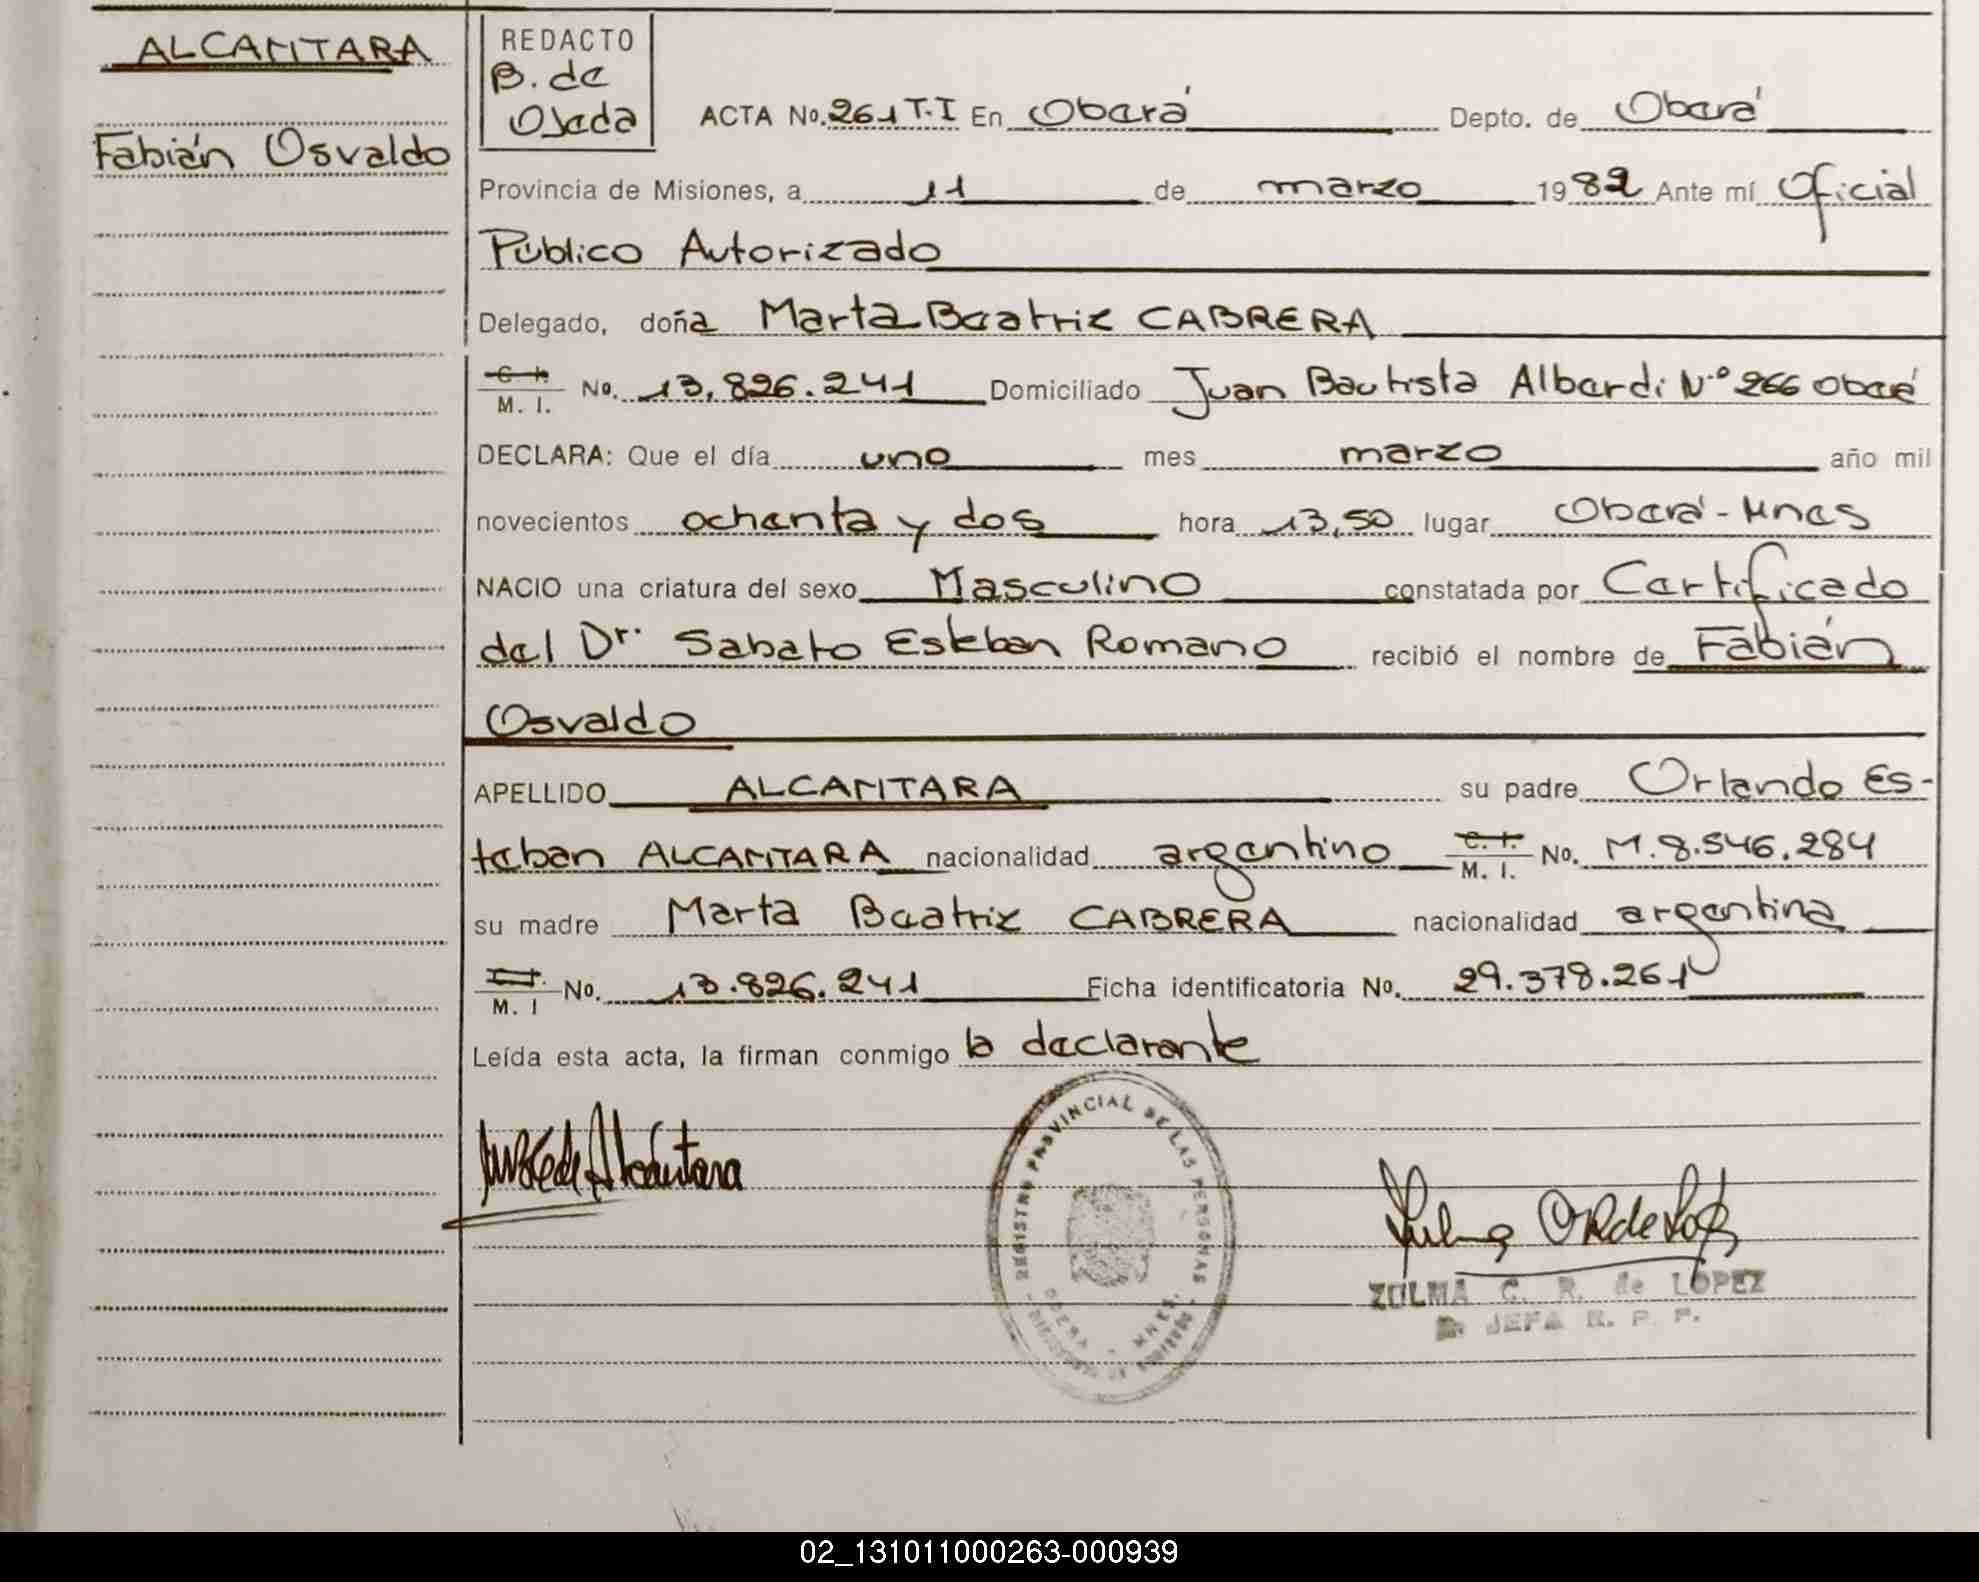 ALCANTARA
Fabián Osvaldo
REDACTO
B. de
Ojeda
ACTA No. 261 T.I En Oberá Depto. de Oberá
Provincia de Misiones, a 11 de marzo 1982 Ante mí Oficial
Público Autorizado
Delegado, doña Marta Beatriz CABRERA
C. I. M. I. No. 13.826.241 Domiciliado Juan Bautista Alberdi N.º 266 Oberá
DECLARA: Que el día uno mes marzo año mil
novecientos ochenta y dos hora 13,50 lugar Oberá - Mnes
NACIO una criatura del sexo Masculino constatada por Certificado
del Dr. Sabato Esteban Romano recibió el nombre de Fabián
Osvaldo
APELLIDO ALCANTARA su padre Orlando Es-
teban ALCANTARA nacionalidad argentino C. I. M. I. No. M.8.546.284
su madre Marta Beatriz CABRERA nacionalidad argentina
M. I No. 13.826.241 Ficha identificatoria No. 29.378.261
Leída esta acta, la firman conmigo la declarante
de Alcántara
REGISTRO PROVINCIAL DE LAS PERSONAS
OBERA - MNES.
ZULMA C. R. de LOPEZ
JEFA R. P. P.
02_131011000263-000939